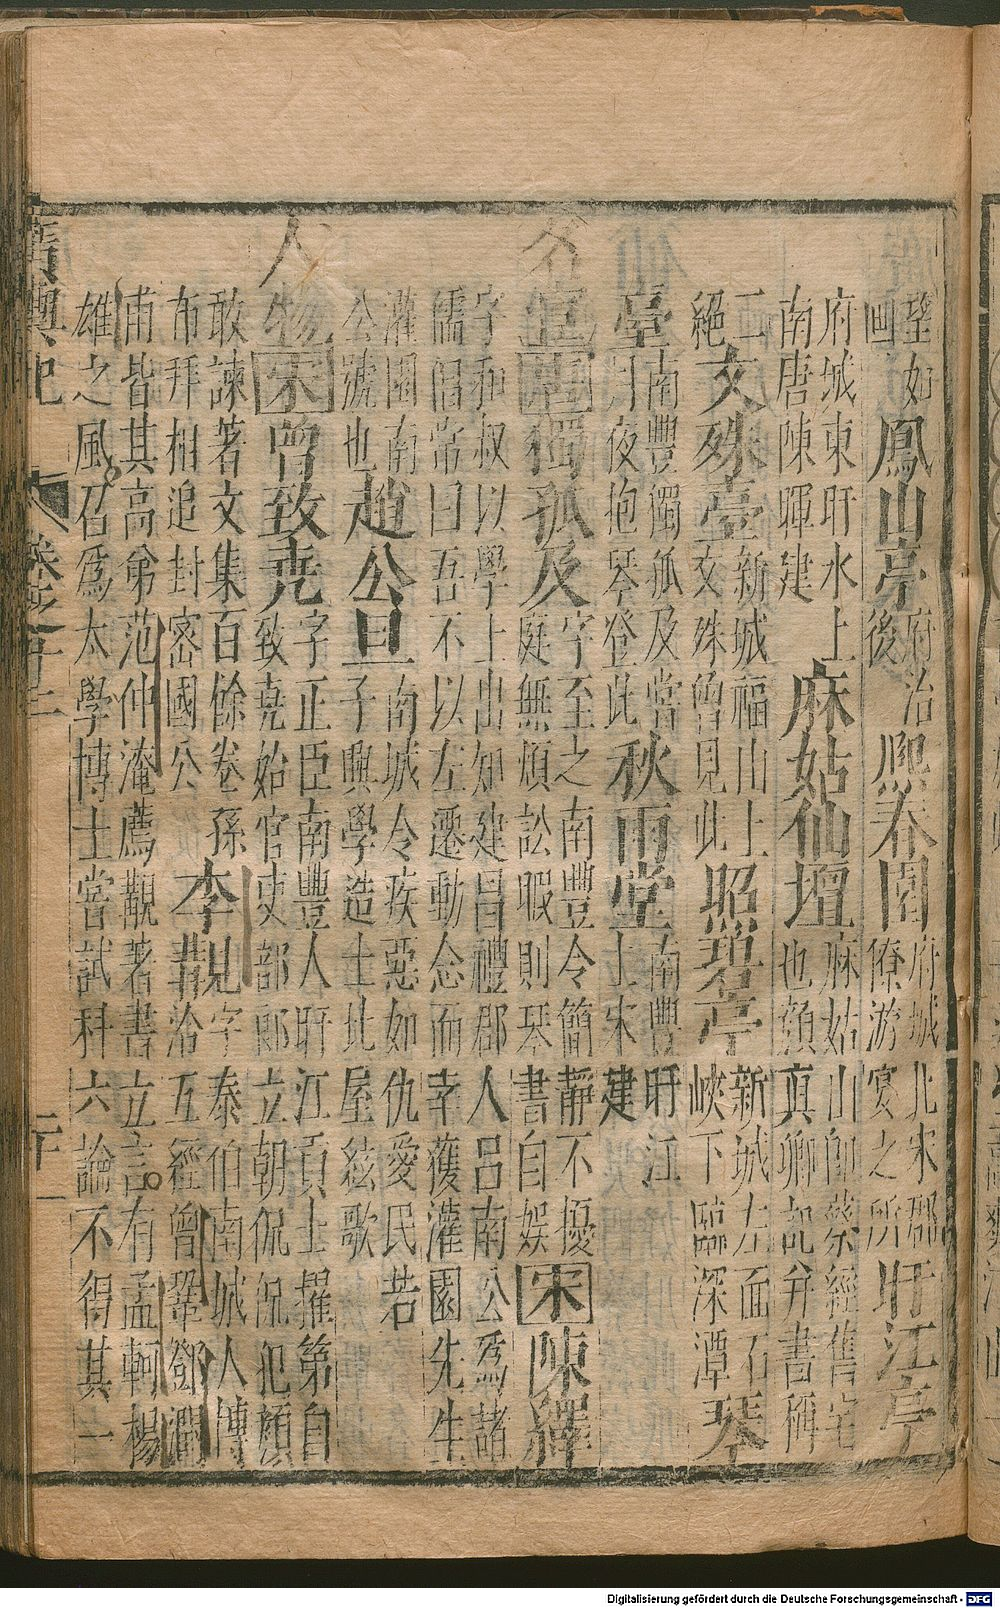 望如
画鳳山亭府治
後熙春園府城北宋郡
僚游宴之所盱江亭
府城東盱水上
南唐陳暉建麻姑仙壇麻姑山師蔡經舊宅
也顏真卿記并書稱
二
絕文殊臺新城福山上
文殊曾見此照碧亭新城左面石
峽下臨深潭琴
臺南豐獨孤及嘗
月夜抱琴登此秋雨堂南豐盱江
上宋建
名宦唐獨孤及字至之南豐令簡靜不擾
庭無煩訟暇則琴書自娛宋陳繹
字和叔以學士出知建昌禮郡人呂南公爲諸
儒倡常曰吾不以左遷動念而幸獲灌園先生
灌園南
公號也趙公旦南城令疾惡如仇愛民若
子興學造士比屋絃歌
人物宋曾致堯字正臣南豐人盱江貢士擢第自
致堯始官吏部郎立朝侃侃犯顏
敢諫著文集百餘卷孫
布拜相追封密國公李覯字泰伯南城人博
洽五經曾鞏鄧潤
甫皆其高弟范仲淹薦覯著書立言有孟軻楊
雄之風召爲太學博士嘗試科六論不得其一
廣輿記 卷之十二 二十一
Digitalisierung gefördert durch die Deutsche Forschungsgemeinschaft - DFG